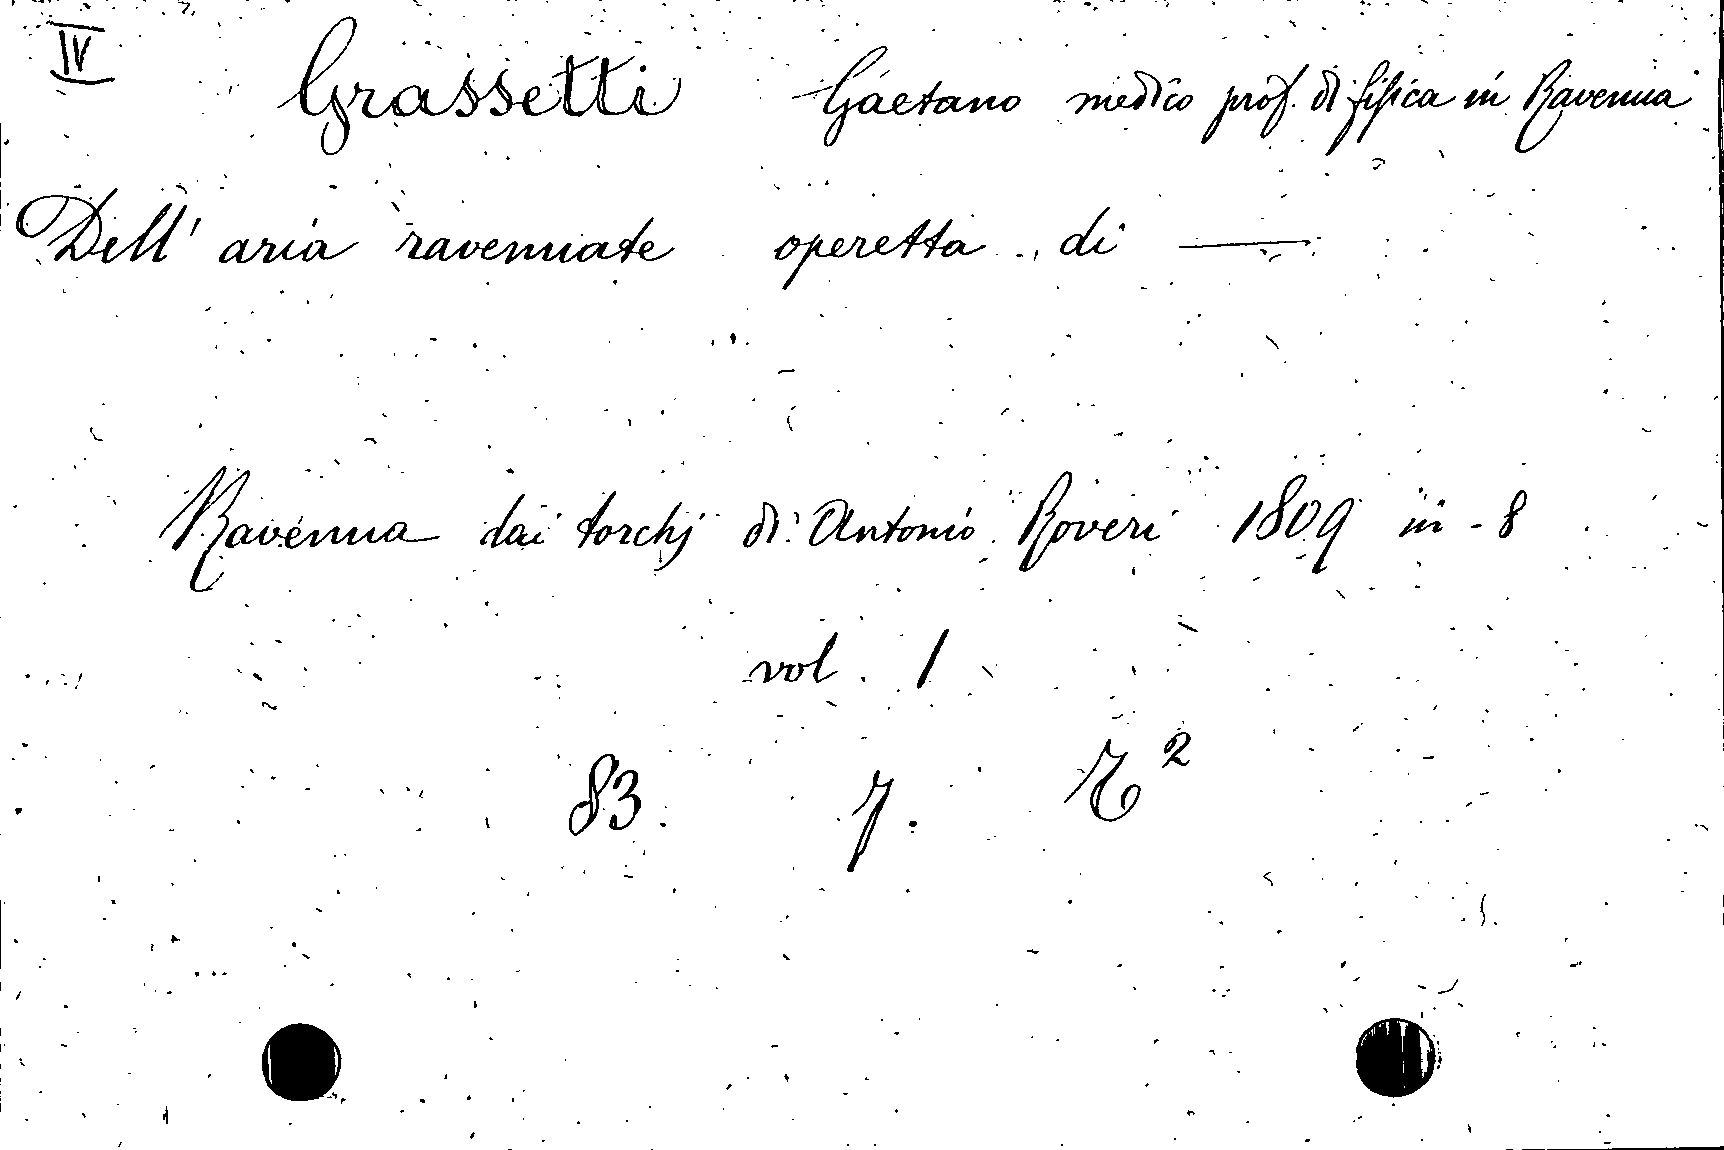 IV
Grassetti Gaetano medico prof. di fisica in Ravenna
Dell' aria ravennate operetta di ——
Ravenna dai torchj di Antonio Roveri 1809 in-8
vol. 1
83. 7. 2